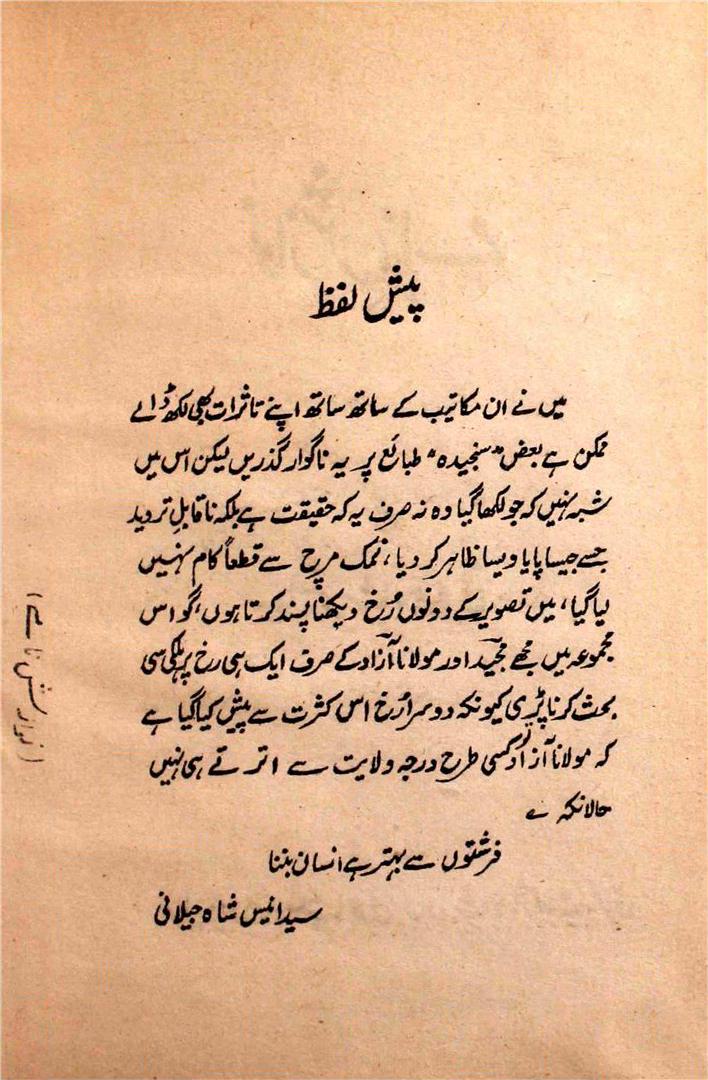 پیش لفظ
میں نے ان مکاتیب کے ساتھ ساتھ اپنے تاثرات بھی لکھ ڈالے
ممکن ہے بعض "سنجیدہ" طبائع پر یہ ناگوار گذریں لیکن اس میں
شبہ نہیں کہ جو لکھا گیا وہ نہ صرف یہ کہ حقیقت ہے بلکہ ناقابلِ تردید
جسے جیسا پایا ویسا ظاہر کر دیا، نمک مرچ سے قطعاً کام نہیں
لیا گیا، میں تصویر کے دونوں رُخ دیکھنا پسند کرتا ہوں، گو اس
مجموعہ میں مجھے مجیدؔ اور مولانا آزادؔ کے صرف ایک ہی رخ پر ہلکی سی
بحث کرنا پڑی کیونکہ دوسرا رُخ اس کثرت سے پیش کیا گیا ہے
کہ مولانا آزادؔ کسی طرح درجہ ولایت سے اترتے ہی نہیں
حالانکہ ے
فرشتوں سے بہتر ہے انسان بننا
سید انیس شاہ جیلانی
(نوازش نامے)